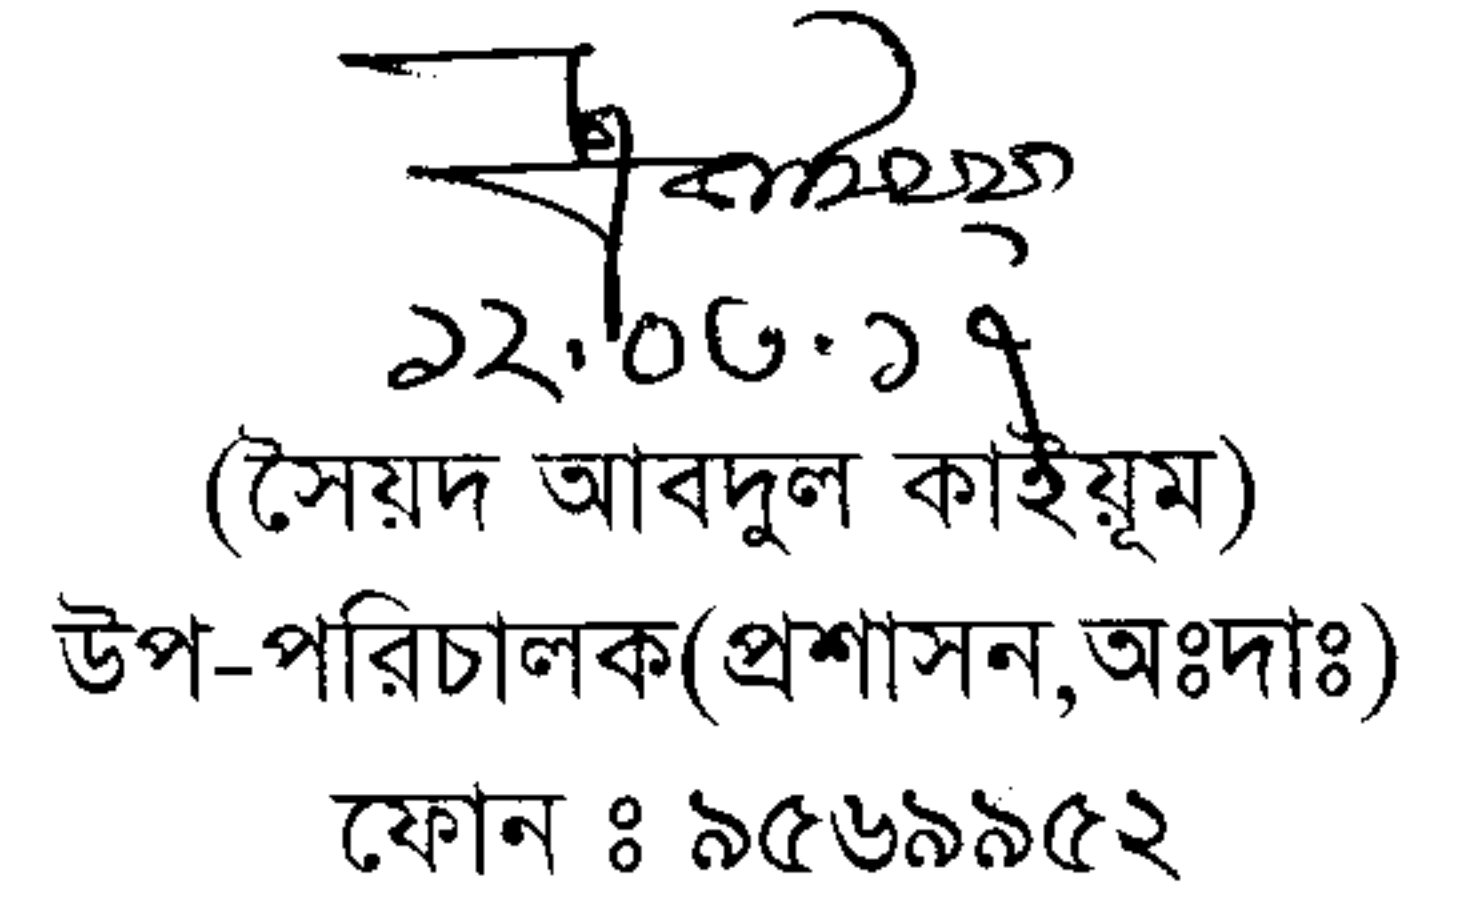 ১২.০৩.১৭
(সৈয়দ আবদুল কাইয়ূম)
উপ-পরিচালক(প্রশাসন,অঃদাঃ)
ফোন ঃ ৯৫৬৯৯৫২